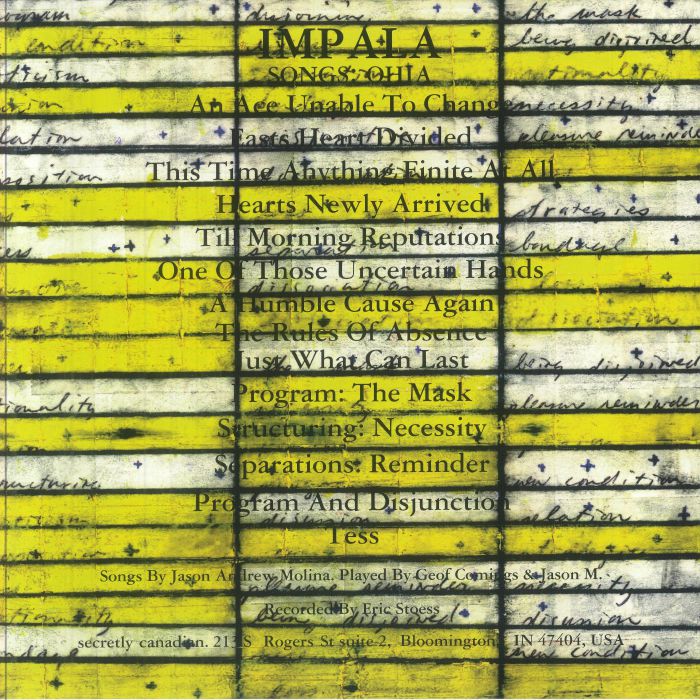 program
disjoining
the mask
being disjoined
condition
IMPALA
SONGS: OHIA
An Ace Unable To Change
necessity
Easts Heart Divided
pleasure reminder
This Time Anything Finite At All
Hearts Newly Arrived
strategies
Till Morning Reputations
bondage
One Of Those Uncertain Hands
dissociation
A Humble Cause Again
The Rules Of Absence
Just What Can Last
being disjoined
Program: The Mask
pleasure reminder
Structuring: Necessity
Separations: Reminder
structuring
new condition
Program And Disjunction
relation
disunion
Tess
Songs By Jason Andrew Molina. Played By Geof Comings & Jason M.
pleasure reminder
necessity
Recorded By Eric Stoess
being disjoined
disunion
secretly canadian. 213 S Rogers St suite 2, Bloomington, IN 47404, USA
new condition